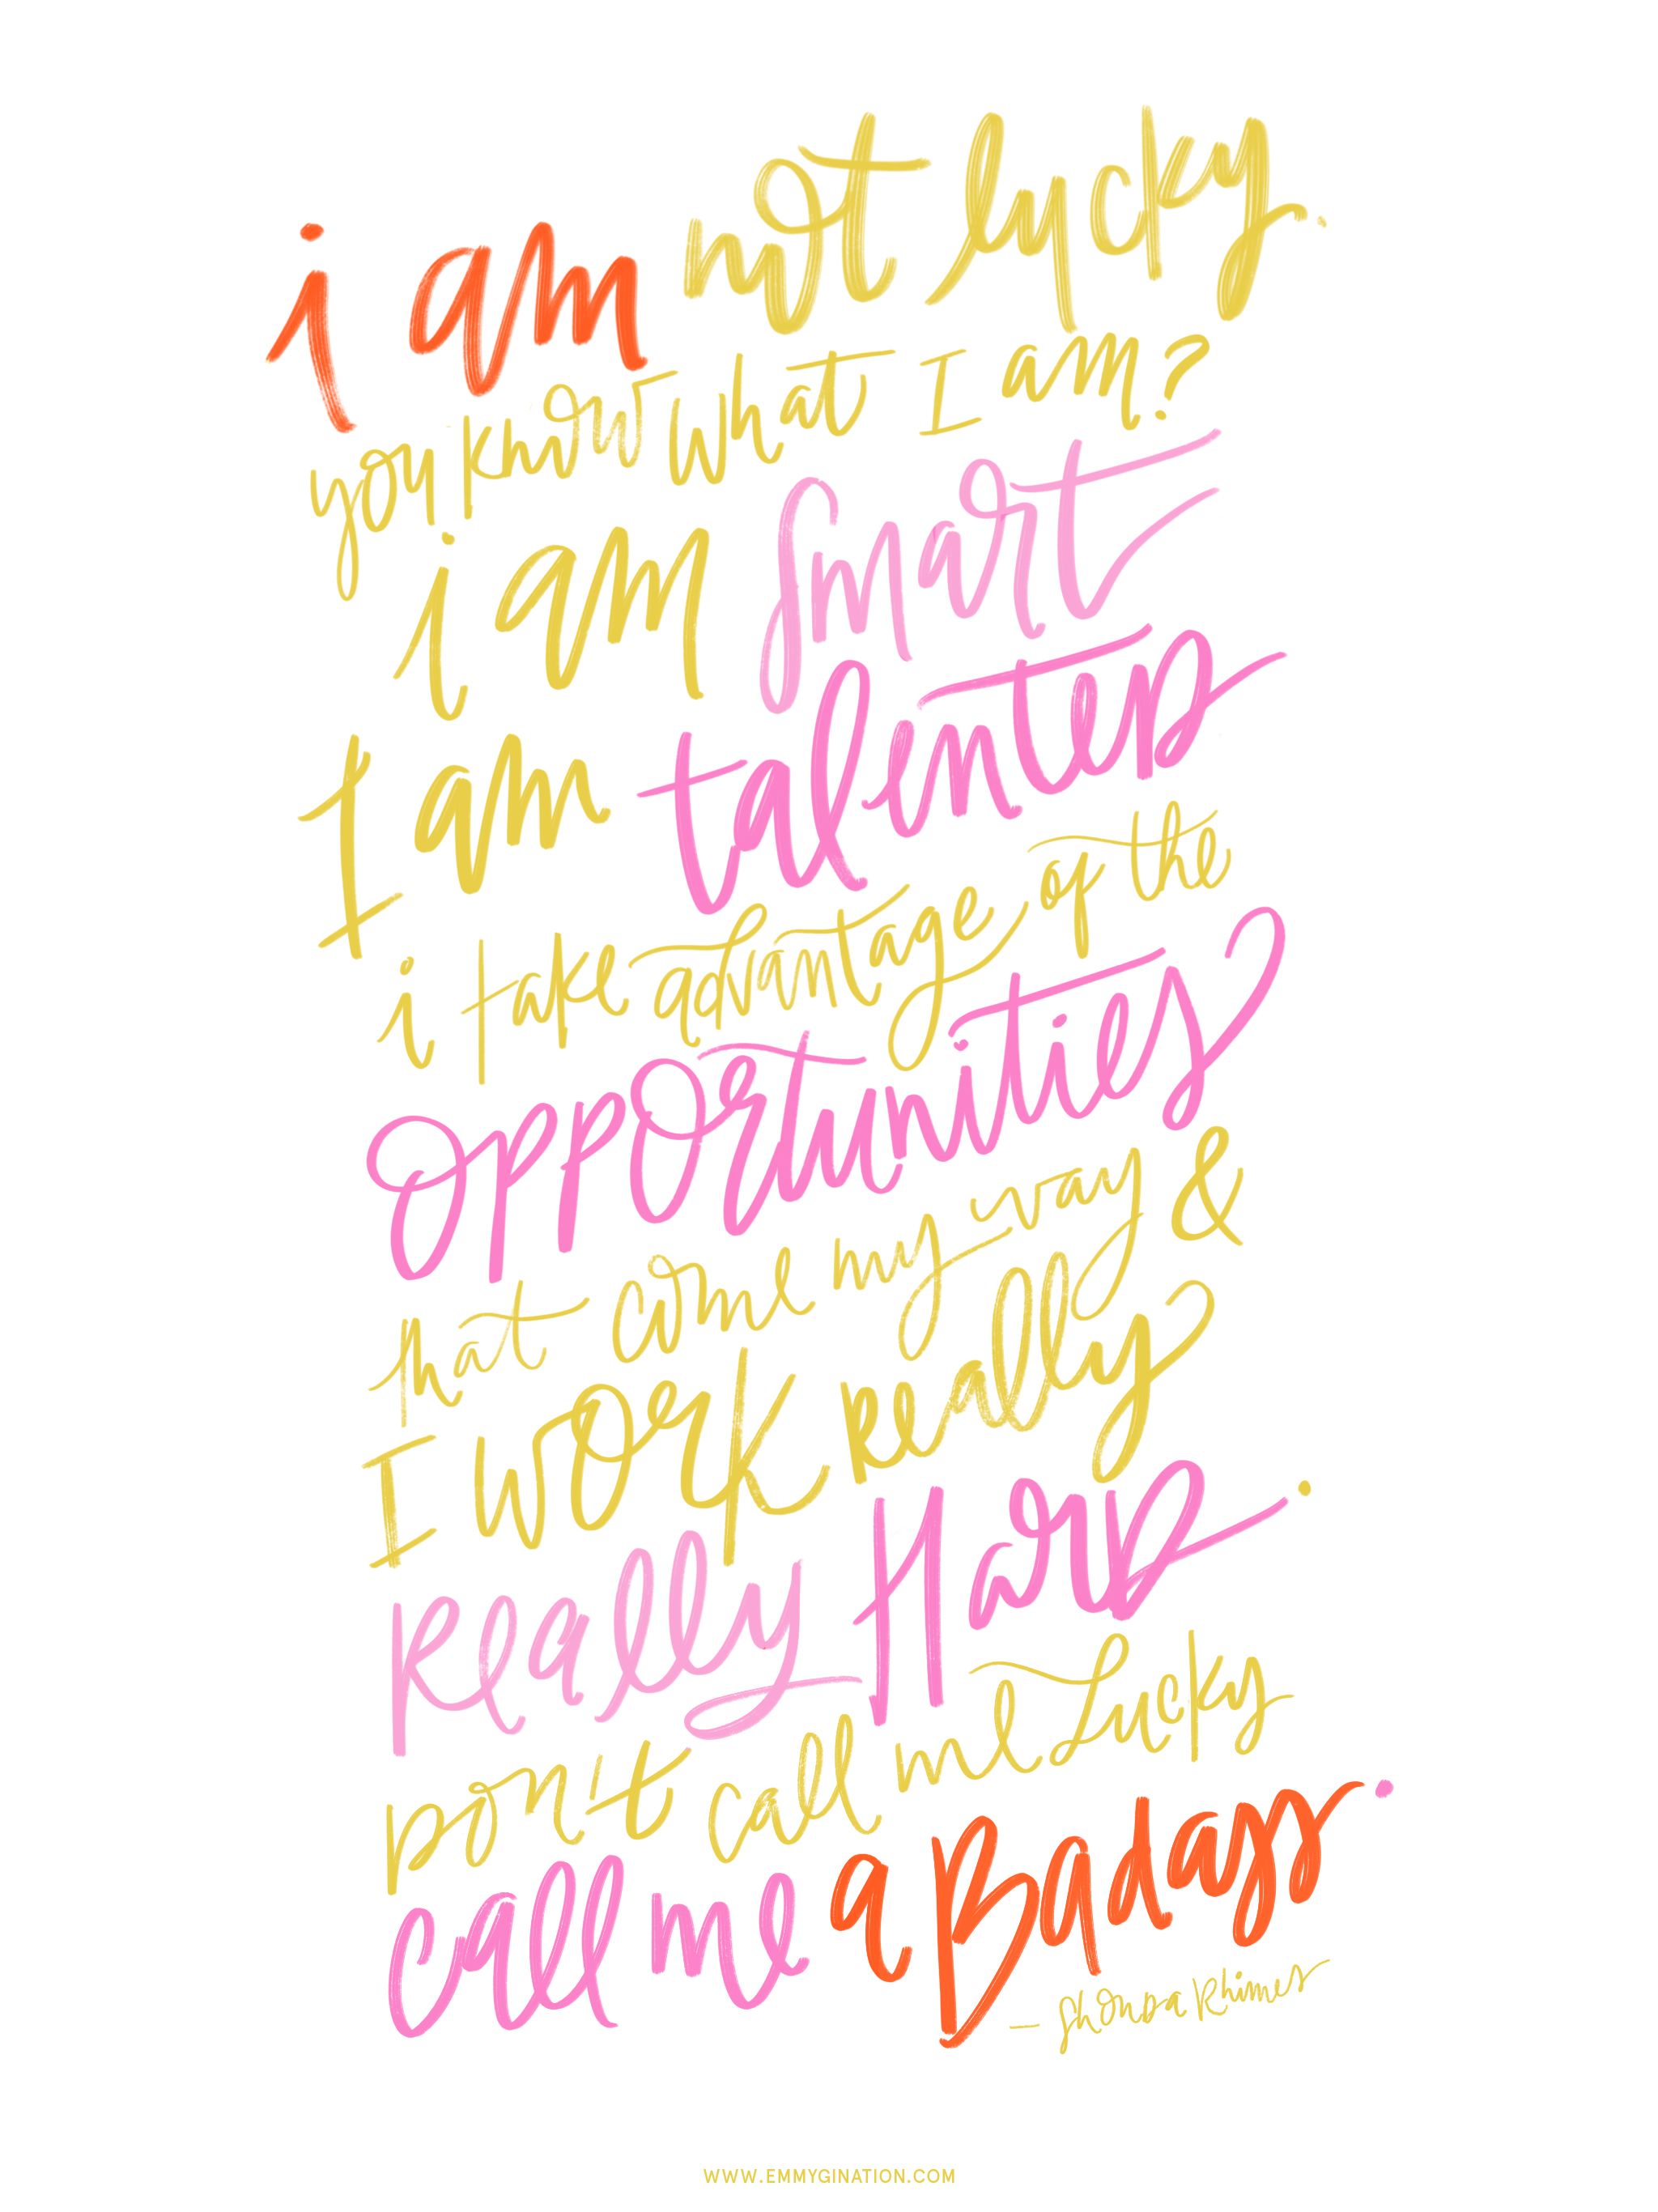 i am not lucky.
you know what I am?
i am smart
I am talented
i take advantage of the
opportunities
that come my way &
I work really
really Hard.
Don't call me Lucky
call me a Badass.
- Shonda Rhimes
WWW.EMMYGINATION.COM